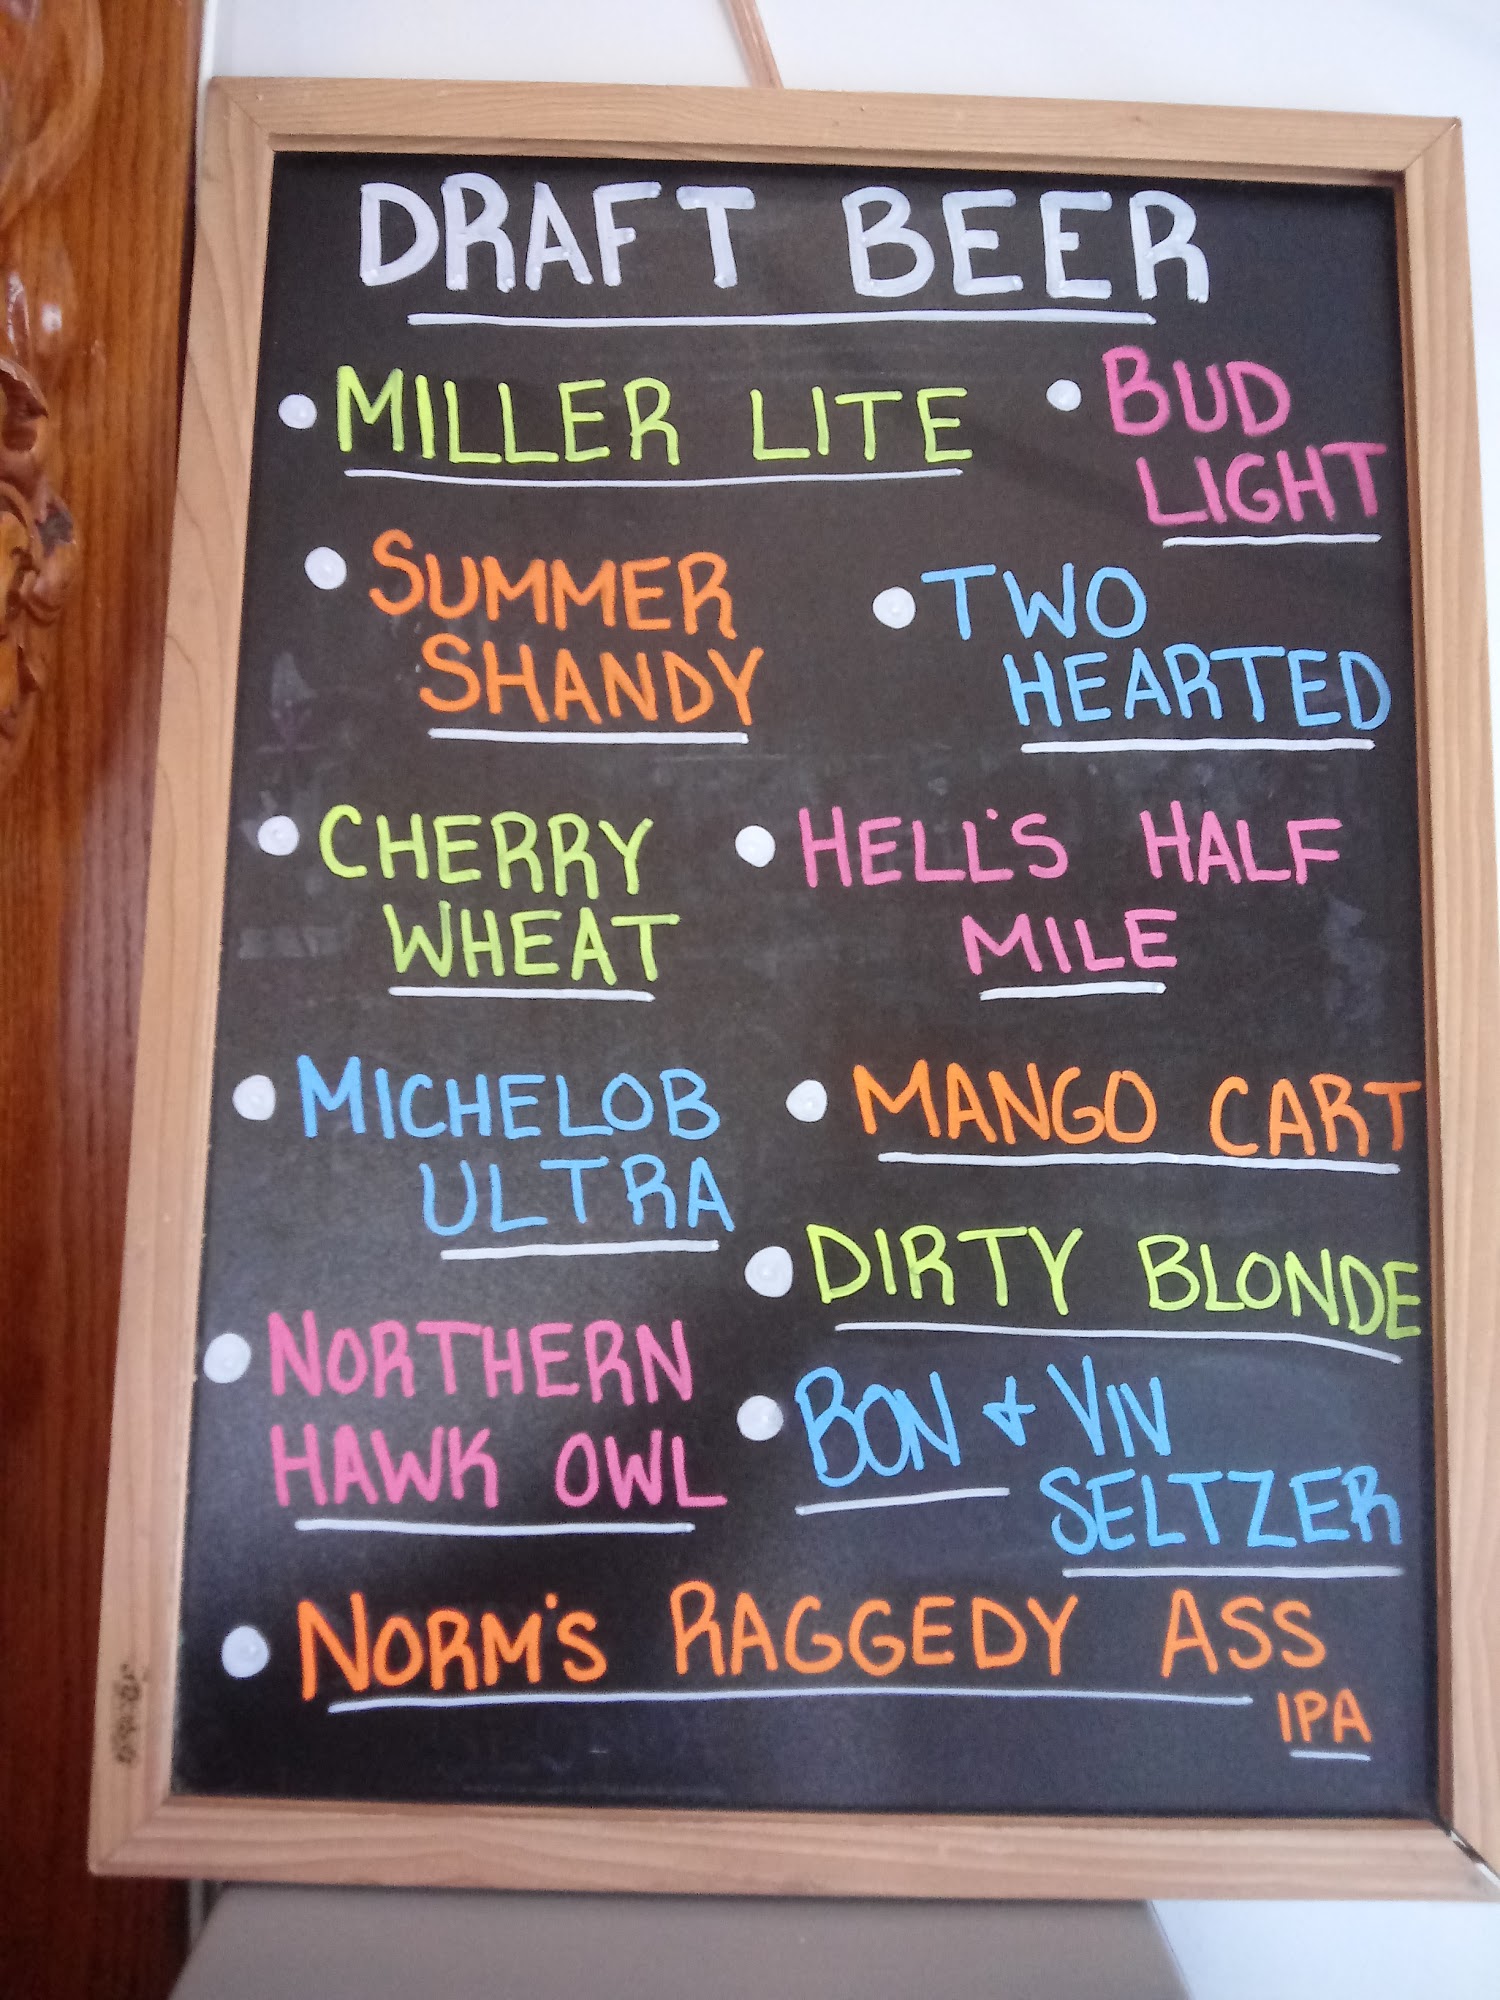 DRAFT BEER
MILLER LITE
BUD
LIGHT
SUMMER
SHANDY
TWO
HEARTED
CHERRY
WHEAT
HELL'S HALF
MILE
MICHELOB
ULTRA
MANGO CART
DIRTY BLONDE
NORTHERN
HAWK OWL
BON & VIV
SELTZER
NORM'S RAGGEDY ASS
IPA